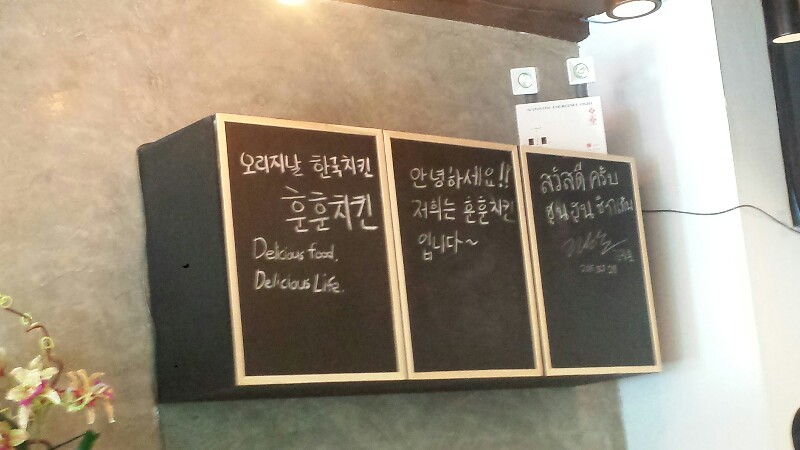 오리지날 한국치킨
훈훈치킨
Delicious food,
Delicious Life.
안녕하세요!!
저희는 훈훈치킨
입니다~
สวัสดี ครับ
ฮุน ฮุน ชิกเก้น